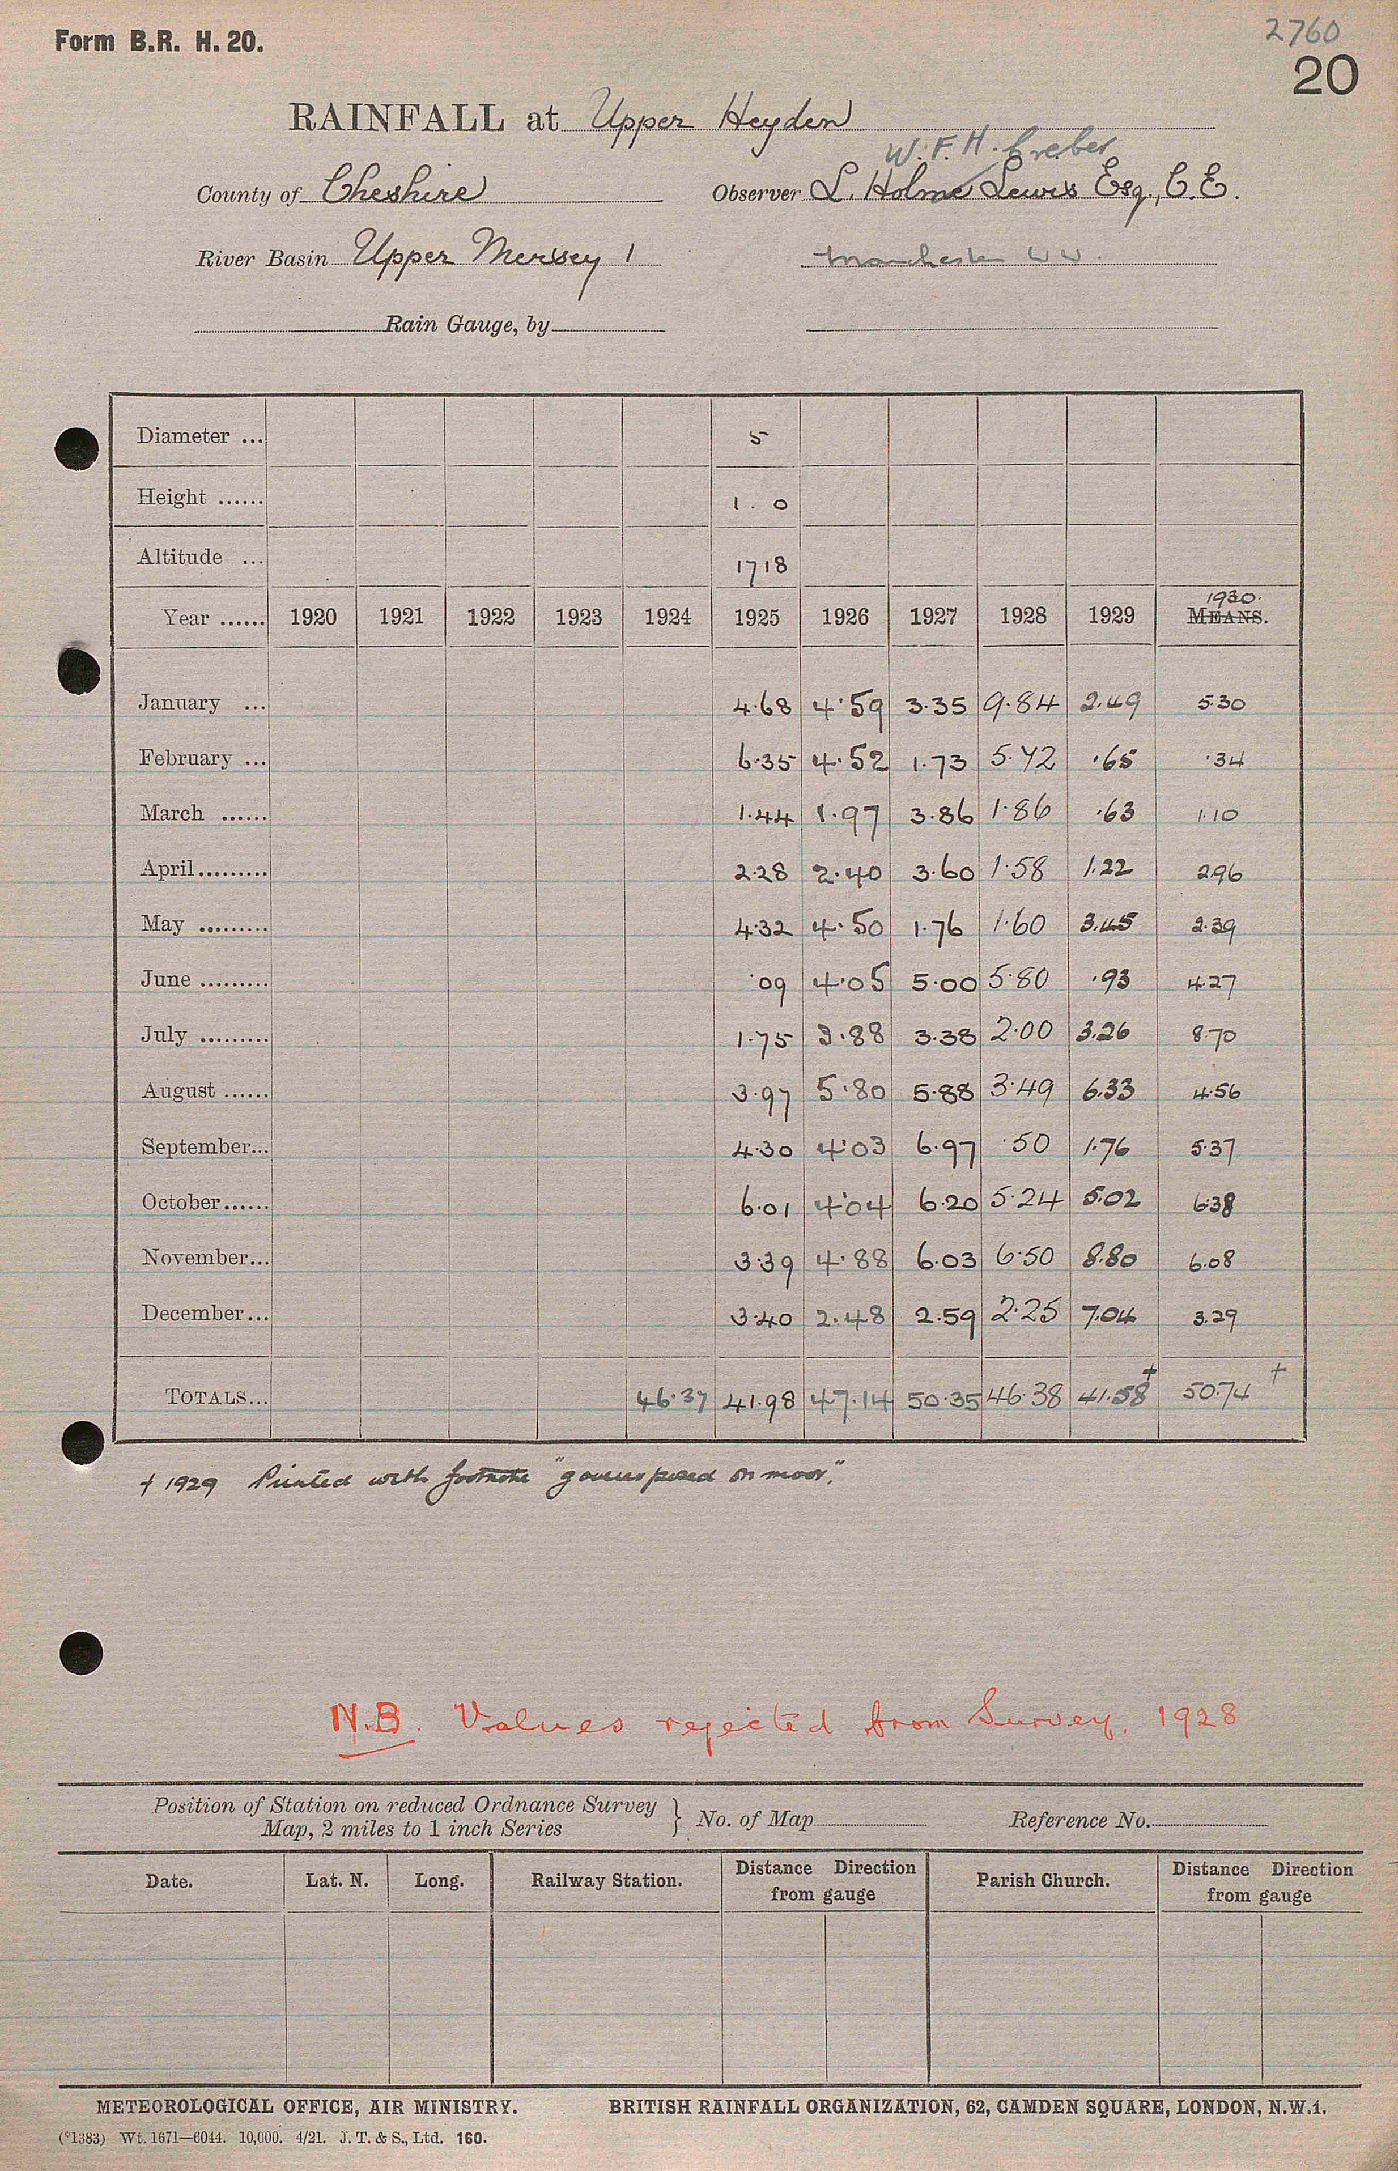 2760
Form B.R. H. 20.
20
RAINFALL at Upper Heyden
W. F. H. Creber
County of Cheshire Observer L. Holme Lewis Esq., C.E.
River Basin Upper Mersey 1 Manchester W W.
Rain Gauge, by
Diameter ... 5
Height ...... 1 . 0
Altitude ... 1718
1930.
Year ...... 1920 1921 1922 1923 1924 1925 1926 1927 1928 1929 MEANS.
January ... 4.68 4.59 3.35 9.84 2.49 5.30
February ... 6.35 4.52 1.73 5.72 .65 .34
March ...... 1.44 1.97 3.86 1.86 .63 1.10
April ......... 2.28 2.40 3.60 1.58 1.22 2.96
May ......... 4.32 4.50 1.76 1.60 3.45 2.39
June ......... .09 4.05 5.00 5.80 .93 4.27
July ......... 1.75 3.88 3.38 2.00 3.26 8.70
August ...... 3.97 5.80 5.88 3.49 6.33 4.56
September... 4.30 4.03 6.97 .50 1.76 5.37
October...... 6.01 4.04 6.20 5.24 5.02 6.38
November... 3.39 4.88 6.03 6.50 8.80 6.08
December... 3.40 2.48 2.59 2.25 7.04 3.29
TOTALS... 46.37 41.98 47.14 50.35 46.38 41.58† 50.74†
† 1929 Printed with footnote on moor."
N.B. Values rejected from Survey. 1928
Position of Station on reduced Ordnance Survey
Map, 2 miles to 1 inch Series } No. of Map Reference No.
Date. Lat. N. Long. Railway Station. Distance Direction from gauge Parish Church. Distance Direction from gauge
METEOROLOGICAL OFFICE, AIR MINISTRY. BRITISH RAINFALL ORGANIZATION, 62, CAMDEN SQUARE, LONDON, N.W.1.
(*1383) Wt. 1671—6044. 10,000. 4/21. J. T. & S., Ltd. 160.